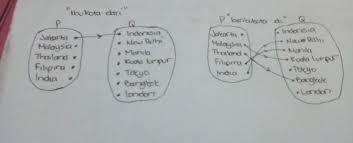 "Ibukota dari"
P Q
Jakarta
Malaysia
Thailand
Filipina
India
Indonesia
New Delhi
Manila
Kuala Lumpur
Tokyo
Bangkok
London
P "beribukota di" Q
Jakarta
Malaysia
Thailand
Filipina
India
Indonesia
New Delhi
Manila
Kuala Lumpur
Tokyo
Bangkok
London